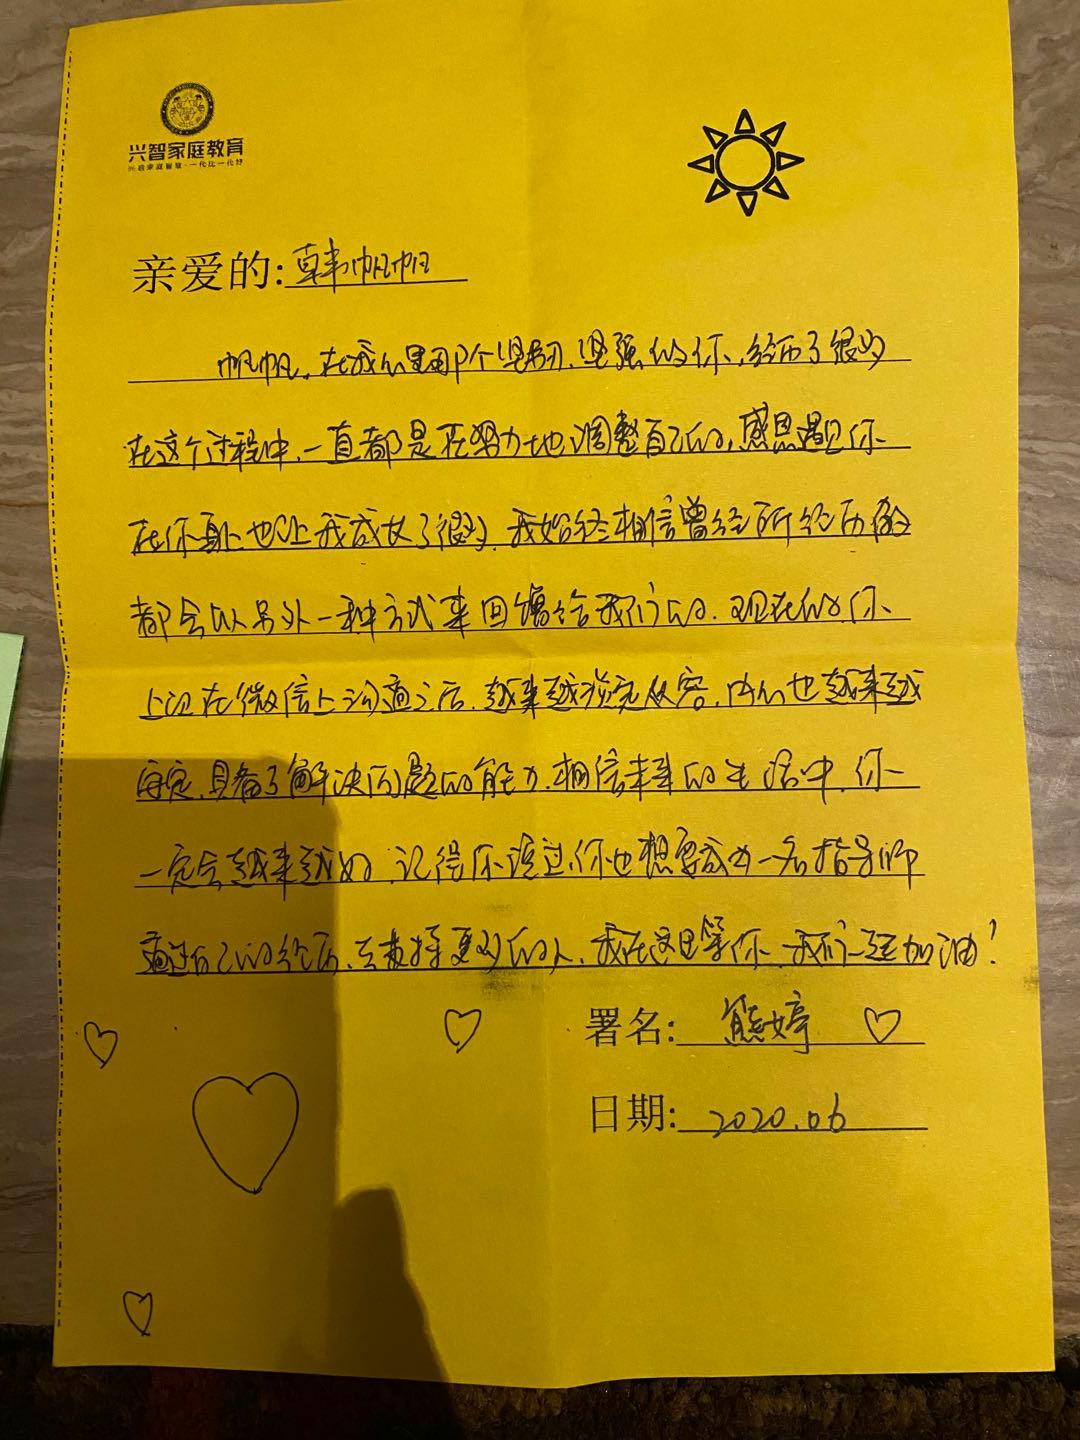 兴智家庭教育
亲爱的: 韩帆帆
帆帆，在我心里那个坚韧、坚强的你，经历了很多
在这个过程中，一直都是在努力地调整自己的，感恩遇见你
在你身上也让我成长了很多，我始终相信曾经所经历的
都会以另外一种方式来回馈给我们的，现在的你
上次在微信上沟通之后，越来越从容，内心也越来越
安定，具备了解决问题的能力，相信未来的生活中，你
一定会越来越好，记得你说过，你也想要成为一名指导师
通过自己的经历，去支持更多的人，我在这里等你，我们一起加油！
署名: 熊婷
日期: 2020.06